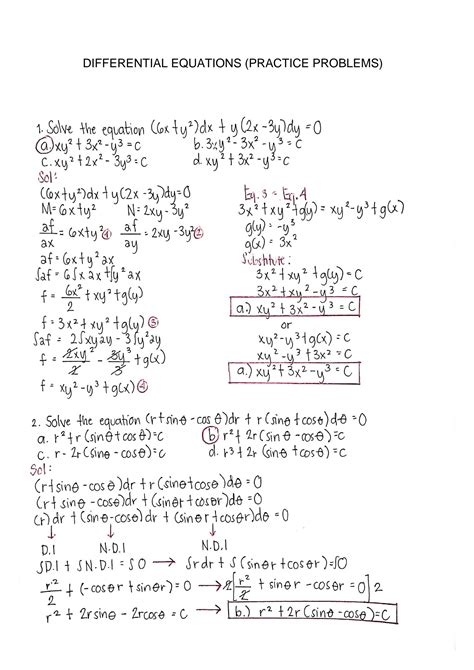 DIFFERENTIAL EQUATIONS (PRACTICE PROBLEMS)
1. Solve the equation (6x+y²)dx + y(2x-3y)dy = 0
a. xy² + 3x² - y³ = C b. 3xy² - 3x² - y³ = C
c. xy² + 2x² - 3y³ = C d. xy² + 3x² - y² = C
Sol:
(6x+y²)dx + y(2x-3y)dy = 0
M = 6x+y² N = 2xy - 3y²
∂f/∂x = 6x+y² ① ∂f/∂y = 2xy - 3y² ②
∂f = 6x+y² ∂x
∫∂f = 6∫x∂x + ∫y²∂x
f = 6x²/2 + xy² + g(y)
f = 3x² + xy² + g(y) ③
∫∂f = 2∫xy∂y - 3∫y²∂y
f = 2xy²/2 - 3y³/3 + g(x)
f = xy² - y³ + g(x) ④
Eq. 3 = Eq. 4
3x² + xy² + g(y) = xy² - y³ + g(x)
g(y) = -y³
g(x) = 3x²
Substitute:
3x² + xy² + g(y) = C
3x² + xy² - y³ = C
a.) xy² + 3x² - y³ = C
or
xy² - y³ + g(x) = C
xy² - y³ + 3x² = C
a.) xy² + 3x² - y³ = C
2. Solve the equation (r + sinθ - cosθ)dr + r(sinθ + cosθ)dθ = 0
a. r² + r(sinθ + cosθ) = C b. r² + 2r(sinθ - cosθ) = C
c. r - 2r(sinθ - cosθ) = C d. r³ + 2r(sinθ + cosθ) = C
Sol:
(r + sinθ - cosθ)dr + r(sinθ + cosθ)dθ = 0
(r + sinθ - cosθ)dr + (sinθr + cosθr)dθ = 0
(r)dr + (sinθ - cosθ)dr + (sinθr + cosθr)dθ = 0
↓ ↓ ↓
D.I N.D.I N.D.I
∫D.I + ∫N.D.I = ∫0 → ∫rdr + ∫(sinθr + cosθr) = ∫0
r²/2 + (-cosθr + sinθr) = 0 → 2[r²/2 + sinθr - cosθr = 0]2
r² + 2rsinθ - 2rcosθ = C → b.) r² + 2r(sinθ - cosθ) = C